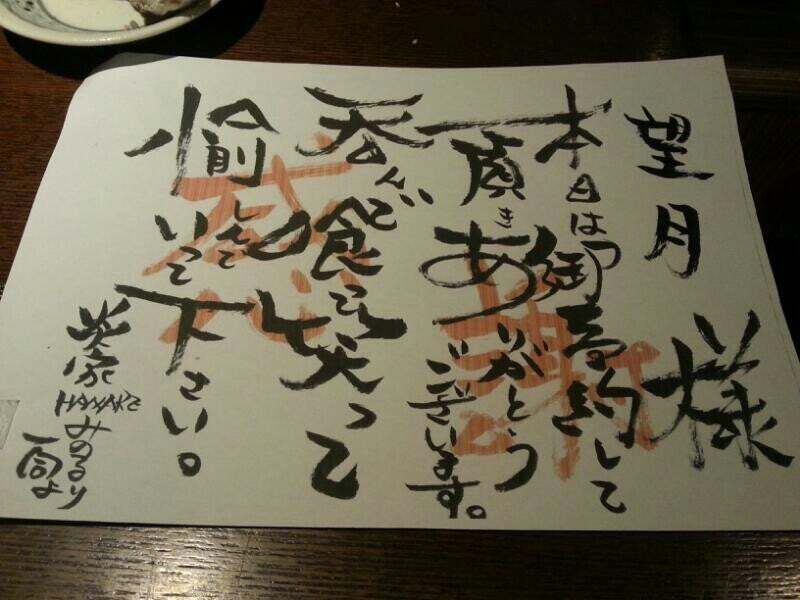 望月様
本日は御予約して
頂きありがとうございます。
呑んで食って笑って
愉しんでいって下さい。
英家 HANAKE みのる
一同より